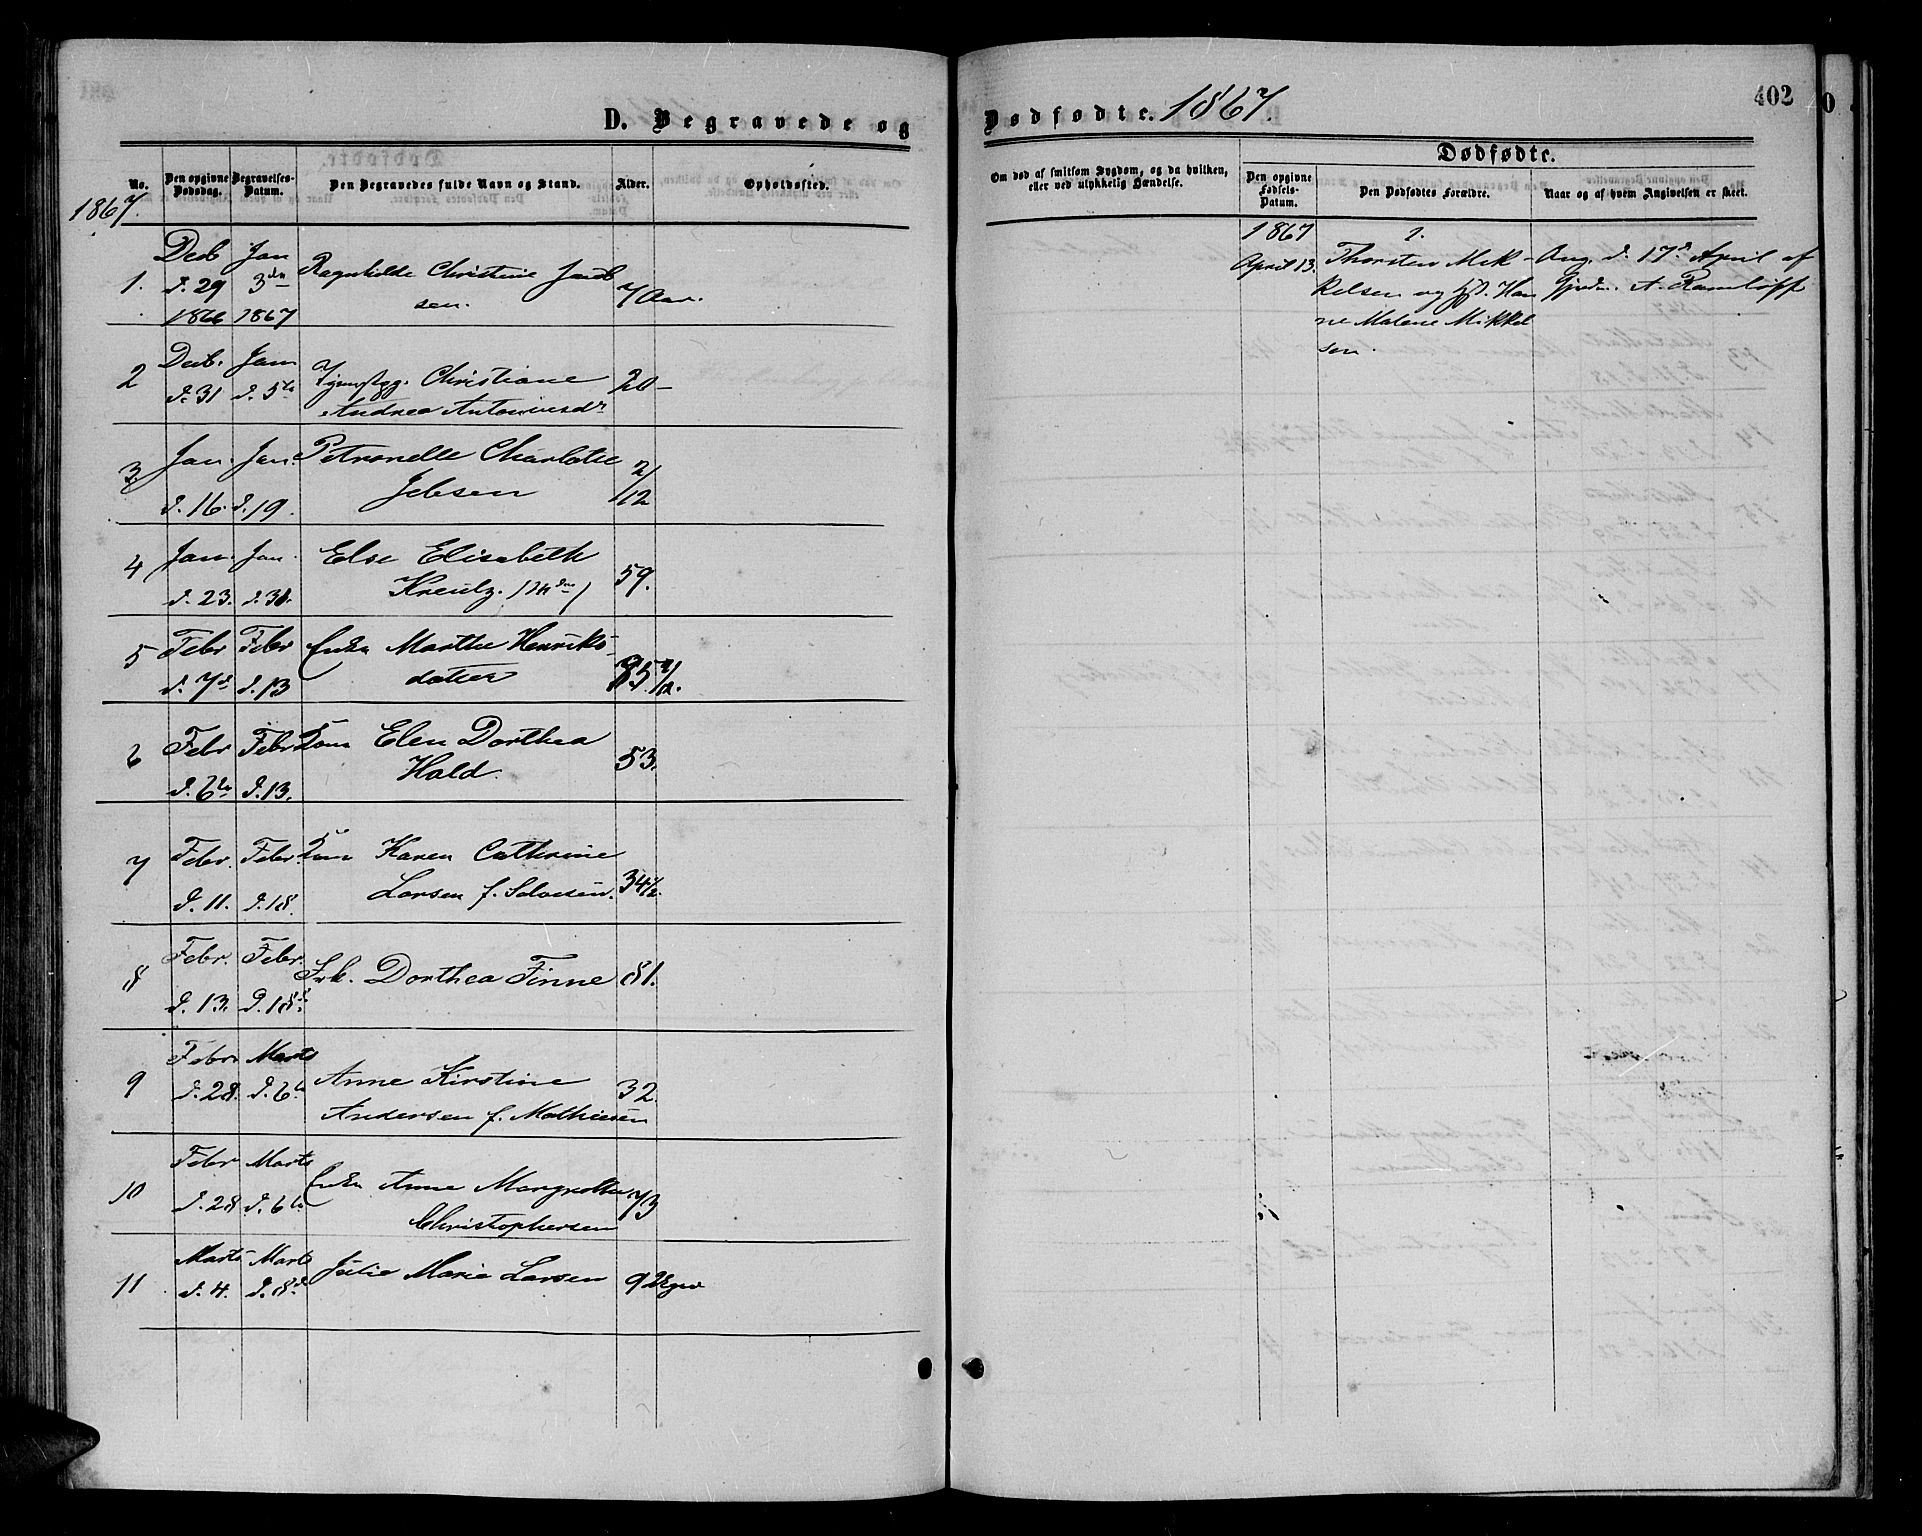 402
D. Begravede og Dødfødte. 1867.
No.
Den opgivne Dødsdag.
Begravelses-Datum.
Den Begravedes fulde Navn og Stand.
Alder.
Opholdssted.
Om død af smitsom Sygdom, og da hvilken, eller ved ulykkelig Hændelse.
Dødfødte.
Den opgivne Fødsels-Datum.
Den Dødfødtes Forældre.
Naar og af hvem Angivelsen er skeet.
1867.
1. Decb d. 29 1866 Jan 3die 1867 Ragnhilde Christine Jacob
sen. 7 Aar.
2 Decb. d. 31 Jan d. 5te Christiane
Andrea Antoniusdr 20 –
3. Jan. d. 16. Jan. d. 19. Petronelle Charlotte
Jebsen 2/12
4 Jan. d. 23. Jan. d. 30. Else Elisabeth
59.
5 Febr d. 7d Febr d. 13 Enke Marthe Henriks-
datter 7/12.
6 Febr d. 6te Febr d. 13. Kone Elen Dorthea
Hald. 53.
7 Febr. d. 11. Febr. d. 18. Kone Karen Cathrine
Larsen f. Salvesen. 34 1/2.
8 Febr. d. 13. Febr. d. 18d. Frk. Dorthea Finne 81.
9 Febr d. 28. Marts d. 6te Anne Kirstine
Andersen f. Mathiesen 32.
10 Febr d. 28 Marts d. 6te Enke Anne Margrethe
Christophersen 73
11 Marts d. 4. Marts d. 8d. Julie Marie Larsen 9 Uger
1867 1.
April 13. Thorsten Mik- Ang. d. 17d April af
kelsen og Han Gjordm. A. Ramløff
ne Malene Mikkel
sen.